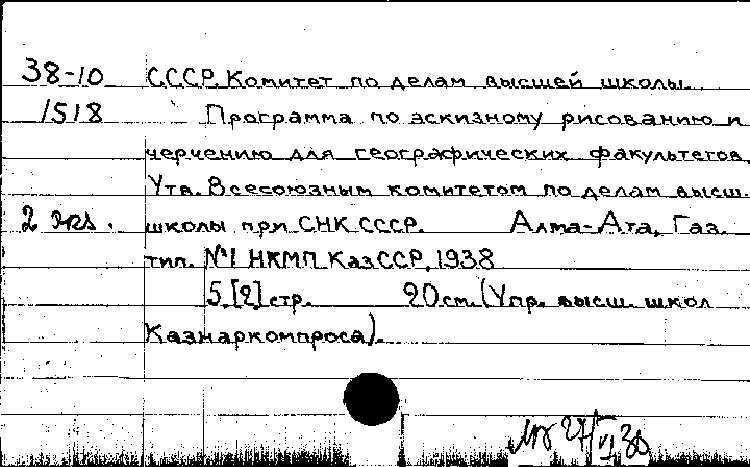 38-10 С.С.С.Р. Комитет по делам высшей школы.
1518 Программа по эскизному рисованию и
черчению для географических факультетов
Утв. Всесоюзным комитетом по делам высш.
2 экз. школы при СНК СССР. Алма-Ата, Газ.
тип. №1 НКМП КазССР, 1938
5, [2] стр. 20 см. (Упр. высш. школ
Казнаркомпроса).